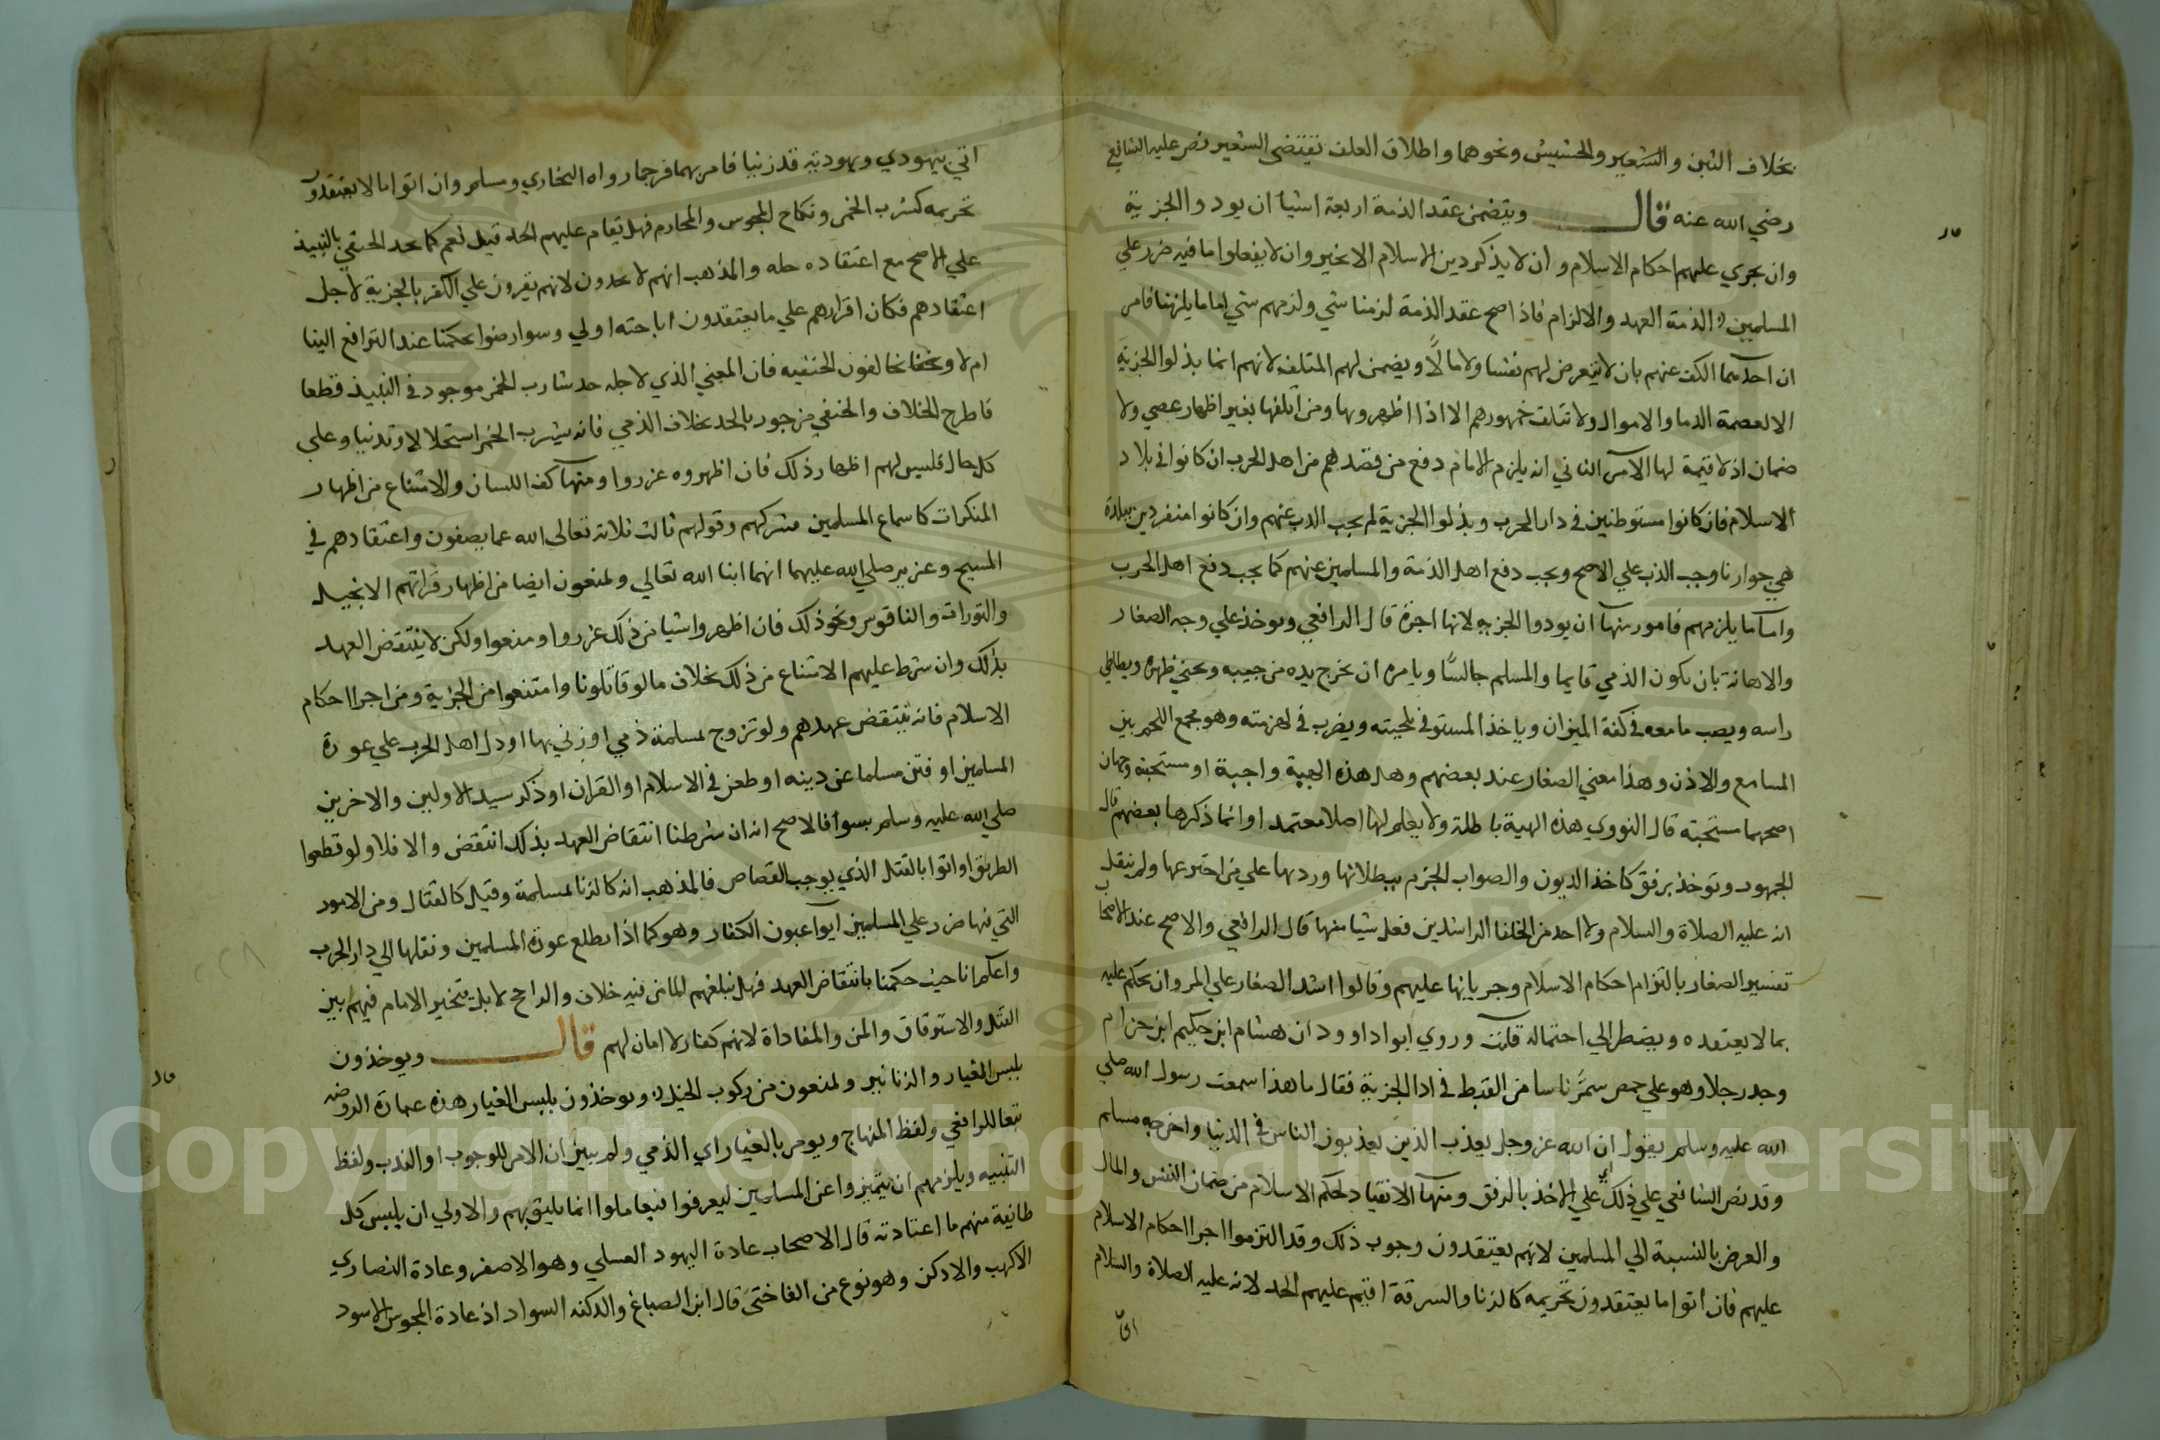 بخلاف التبن والشعير والحشيش ونحوهما واطلاق العلف تقتضى الشعير نص عليه الشافع
رضي الله عنه قال ويتضمن عقد الذمة اربعة اشيا ان يودوا الجزية
وان يجري عليهم احكام الاسلام و ان لا يذكر دين الاسلام الا بخير وان لا يفعلوا ما فيه ضرر علي
المسلمين الذمة العهد والالزام فاذا صح عقد الذمة لزمنا شي ولزمهم شي اما ما يلزمنا فامر
ان احدهما الكف عنهم بان لا يتعرض لهم نفسا ولا مالا ويضمن لهم المتلف لانهم انما بذلوا الجزية
الا لعصمة الدما والاموال ولا تتلف خمورهم الا اذا اظهروها ومن اتلفها بغير اظهار عصي ولا
ضمان اذ لا قيمة لها الامر الثاني انه يلزم الامام دفع من قصدهم من اهل الحرب ان كانوا في بلاد
الاسلام فان كانوا مستوطنين في دار الحرب وبذلوا الجزية لم يجب الذب عنهم وان كانوا منفردين ببلدة
هي جوارنا وجب الذب علي الاصح ويجب دفع اهل الذمة والمسلمين عنهم كما يجب دفع اهل الحرب
واما ما يلزمهم فامور منها ان يودوا الجزيه لانها اجرة قال الرافعي وتوخذ علي وجه الصغار
والاهانة بان يكون الذمي قايما والمسلم جالسا ويامره ان يخرج يده من جيبه ويحني ظهره ويطاطي
راسه ويصب ما معه في كفة الميزان وياخذ المستوفي بلحيته ويضرب في لهزمته وهو مجمع اللحم بين
الماضغ والاذن وهذا معني الصغار عند بعضهم وهل هذه الهية واجبة او مستحبة وجهان
اصحهما مستحبه قال النووي هذه الهية باطلة ولا يعلم لها اصلا معتمدا وانما ذكرها بعضهم قال
الجمهور وتوخذ برفق كاخذ الديون والصواب الجزم ببطلانها وردها علي من اخترعها ولم ينقل
انه عليه الصلاة والسلام ولا احد من الخلفا الراشدين فعل شيا منها قال الرافعي والاصح عند الاصحاب
تفسير الصغار بالتزام احكام الاسلام وجريانها عليهم وقالوا اشد الصغار علي المر وان يحكم عليه
بما لا يعتقده ويضطر الي احتماله قلت وروي ابو داوود ان هشام ابن حكيم ابن حزام
وجد رجلا وهو علي حمص سمر ناسا من القبط في ادا الجزية فقال ما هذا سمعت رسول الله صلي
الله عليه وسلم يقول ان الله عز وجل يعذب الذين يعذبون الناس في الدنيا واخرجه مسلم
وقد نص الشافعي علي ذلك اي علي الاخذ بالرفق ومنها الانقياد لحكم الاسلام من ضمان النفس والمال
والعرض بالنسبة الي المسلمين لانهم يعتقدون وجوب ذلك وقد التزموا اجرا احكام الاسلام
عليهم فان اتوا ما يعتقدون تحريمه كالزنا والسرقة اقيم عليهم الحد لانه عليه الصلاة والسلام
اتي
اتي بيهودي ويهودية قد زنيا فامر بهما فرجما رواه البخاري ومسلم وان اتوا ما لا يعتقدون
تحريمه كشرب الخمر ونكاح المجوس والمحارم فهل يقام عليهم الحد قيل نعم كما يحد الحنفي بالنبيذ
علي الاصح مع اعتقاده حله والمذهب انهم لا يحدون لانهم يقرون علي الكفر بالجزية لاجل
اعتقادهم فكان اقرارهم علي ما يعتقدون اباحته اولي وسوا رضوا بحكمنا عند الترافع الينا
ام لا ويخالفون الحنفيه فان المعني الذي لاجله حد شارب الخمر موجود في النبيذ قطعا
فاطرح الخلاف والحنفي مزجور بالحد بخلاف الذمي فانه يشرب الخمر استحلالا وتدينا وعلي
كل حال فليس لهم اظهار ذلك فان اظهروه عزروا ومنها كف اللسان والامتناع من اظهار
المنكرات كاسماع المسلمين شركهم وقولهم ثالث ثلاثة تعالى الله عما يصفون واعتقادهم في
المسيح وعزير صلي الله عليهما انهما ابنا الله تعالي ويمنعون ايضا من اظهار قراتهم الانجيل
والتوراة والناقوس ونحو ذلك فان اظهروا شيا من ذلك عزروا ومنعوا ولكن لا ينتقض العهد
بذلك وان شرط عليهم الامتناع من ذلك بخلاف ما لو قاتلونا وامتنعوا من الجزية ومن اجرا احكام
الاسلام فانه ينتقض عهدهم ولو تزوج بمسلمة ذمي او زني بها او دل اهل الحرب علي عورة
المسلمين او فتن مسلما عن دينه او طعن في الاسلام او القران او ذكر سيد الاولين والاخرين
صلي الله عليه وسلم بسوا فالاصح انه ان شرطنا انتقاض العهد بذلك انتقض والا فلا ولو قطعوا
الطريق او اتوا بالقتل الذي يوجب القصاص فالمذهب انه كالزنا بمسلمة وقيل كالقتال ومن الامور
التي فيها ضرر علي المسلمين ايوا عيون الكفار وهو كما اذا يطلع عورة المسلمين ونقلها الي دار الحرب
واعلم انا حيث حكمنا بانتقاض العهد فهل نبلغهم المامن فيه خلاف والراجح لا بل يتخير الامام فيهم بين
القتل والاسترقاق والمن والمفاداة لانهم كفار لا امان لهم قال ويوخذون
بلبس الغيار والزنانير ويمنعون من ركوب الخيل ويوخذون بلبس الغيار هذه عبارة الروضه
تبعا للرافعي ولفظ المنهاج ويومر بالغيار اي الذمي ولم يبين ان الامر للوجوب او الندب ولفظ
التنبيه ويلزمهم ان يتميزوا عن المسلمين ليعرفوا فيعاملوا انما يليق بهم والاولي ان يلبس كل
طايفة منهم ما اعتادته قال الاصحاب عادة اليهود العسلي وهو الاصفر وعادة النصاري
الاكهب والادكن وهو نوع من الفاختي قال ابن الصباغ والدكنه السواد اذ عادة المجوس الاسود
Copyright © King Saud University